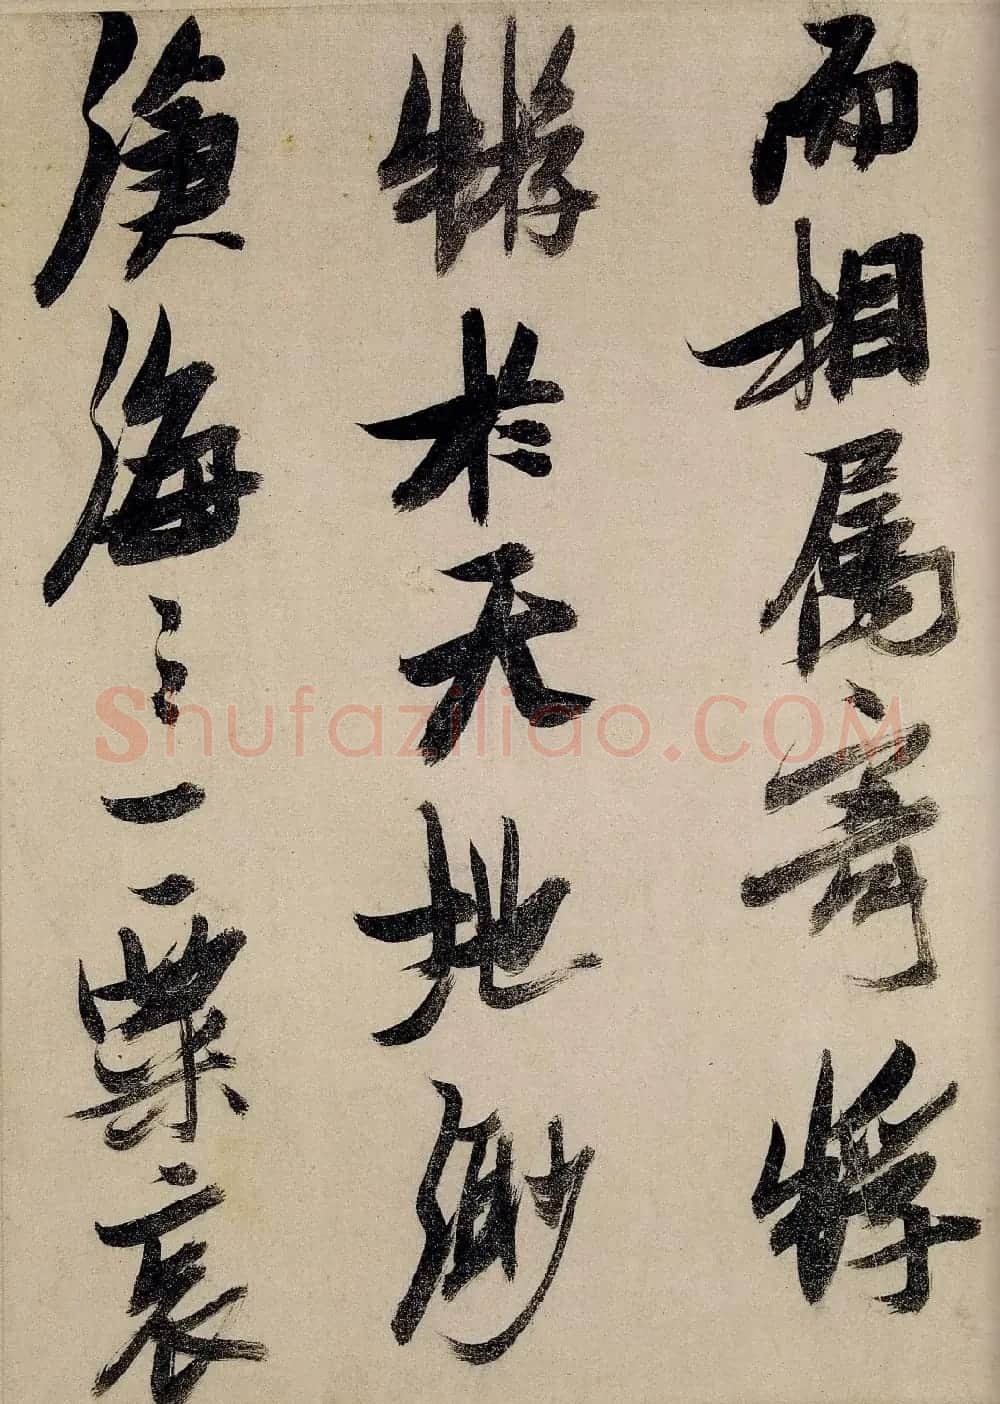 而相属寄蜉
蝣於天地渺
滄海之一粟哀
Shufaziliao.COM